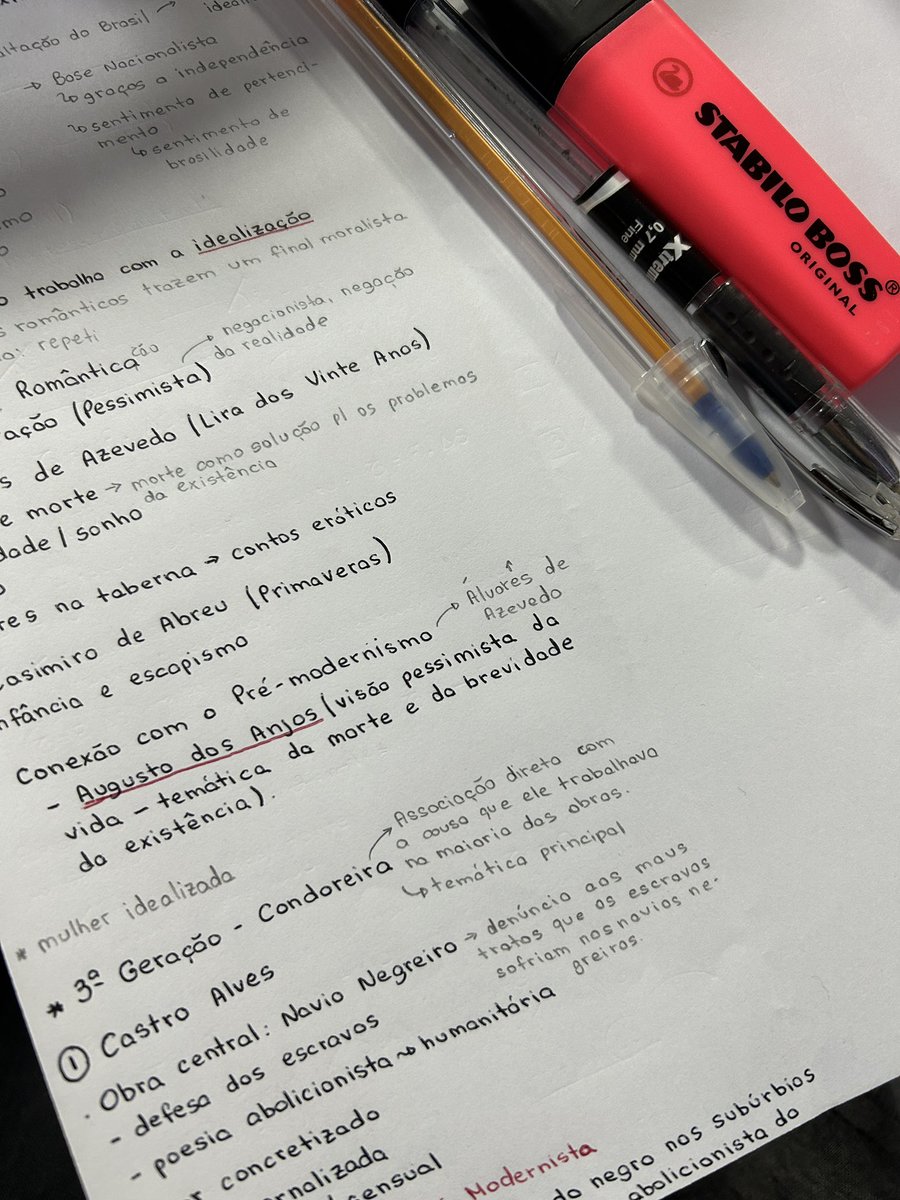 ltação do Brasil →
→ Base Nacionalista
↳ graças a independência
↳ sentimento de pertenci-
mento
↳ sentimento de
brasilidade
o trabalho com a idealização
românticos trazem um final moralista
repeti
ção
Romântica
ação (Pessimista) → negacionista, negação
da realidade
s de Azevedo (Lira dos Vinte Anos)
e morte → morte como solução p/ os problemas
da existência
dade / sonho
res na taberna → contos eróticos
Casimiro de Abreu (Primaveras)
nfância e escapismo
Conexão com o Pré-modernismo → Álvarês de
Azevedo
- Augusto dos Anjos (visão pessimista da
vida – temática da morte e da brevidade
da existência).
* mulher idealizada
* 3ª Geração - Condoreira → Associação direta com
a causa que ele trabalhava
na maioria das obras.
↳ temática principal
① Castro Alves
. Obra central: Navio Negreiro → denúncia aos maus
tratos que os escravos
sofriam nos navios ne-
greiros.
- defesa dos escravos
- poesia abolicionista ~> humanitária
r concretizado
sensual
Modernista
do negro nos subúrbios
abolicionista do
STABILO BOSS®
ORIGINAL
0,7 mm
Fine